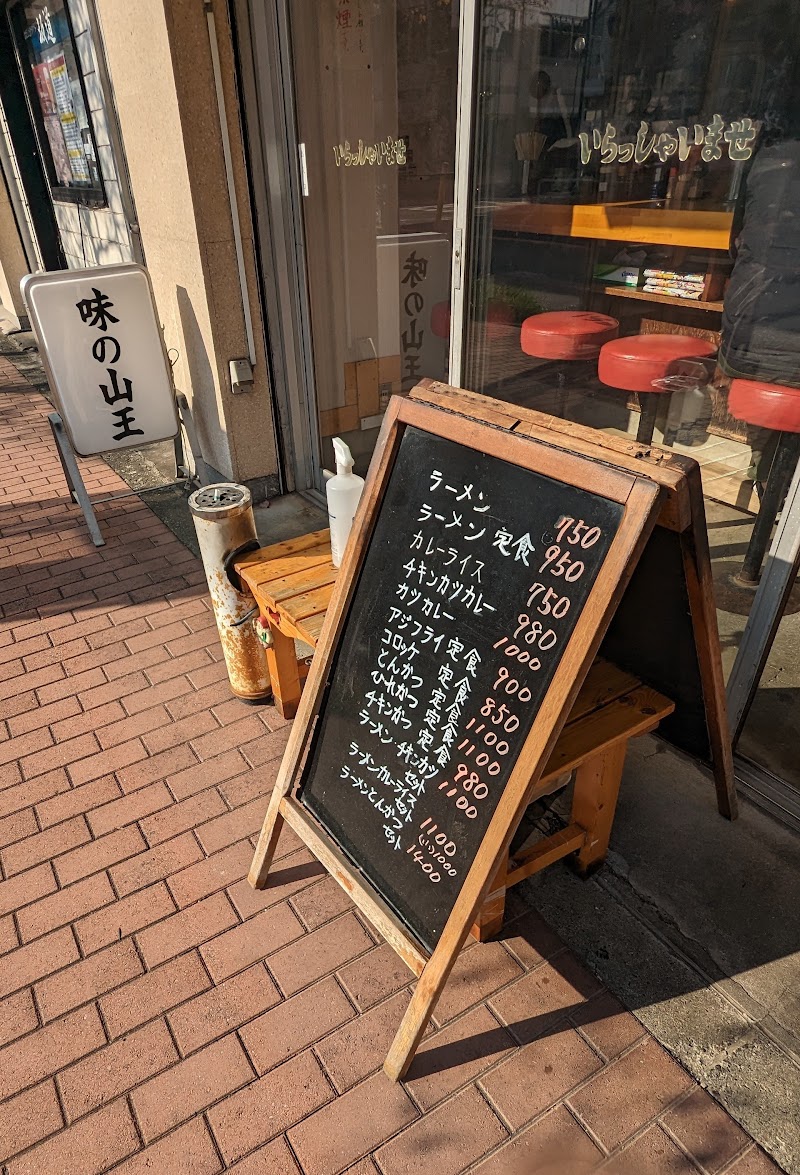 味の山王
いらっしゃいませ
いらっしゃいませ
味の山王
ラーメン 750
ラーメン 定食 950
カレーライス 750
チキンカツカレー 980
カツカレー 1000
アジフライ 定食 900
コロッケ 定食 850
とんかつ 定食 1100
ひれかつ 定食 1100
チキンかつ 定食 980
ラーメン チキンカツ セット 1100
ラーメンカレーライス セット 1100
(小)1000
ラーメンとんかつ セット 1400